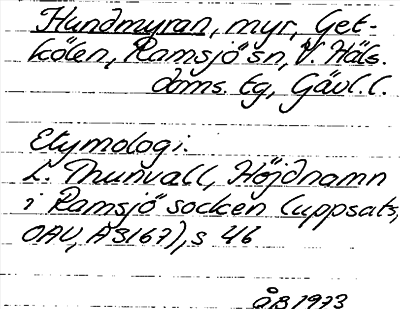 Hundmyran, myr, Get-
kölen, Ramsjö sn, V. Häls.
doms. tg, Gävl. l.
Etymologi:
L. Thunvall, Höjdnamn
i Ramsjö socken (uppsats,
OAU, AS167), s 46
ÅB 1973